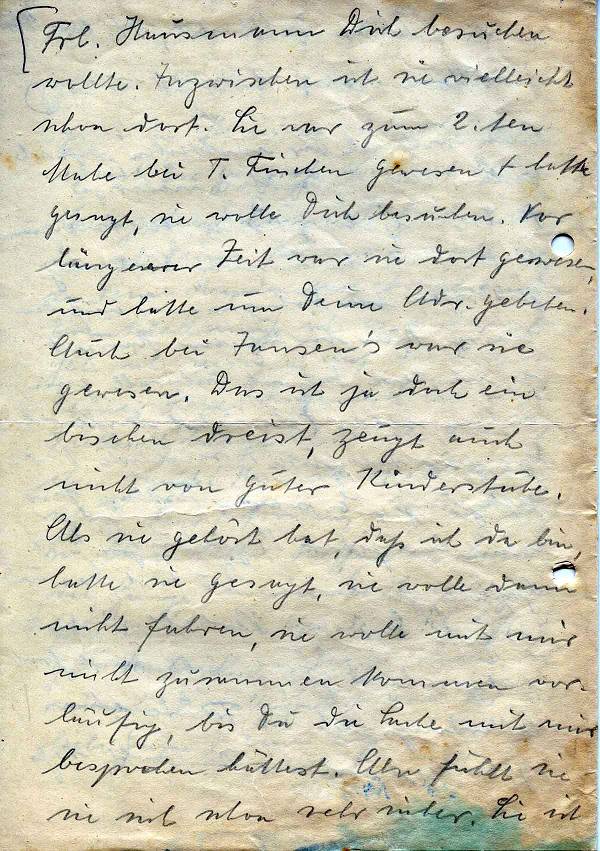 Frl. Hausmann Dich besuchen
wollte. Inzwischen ist sie vielleicht
schon dort. Sie war zum 2. ten
Male bei T. Finchen gewesen + hatte
gesagt, sie wolle Dich besuchen. Vor
längerer Zeit war sie dort gewesen,
und hatte um Deine Adr. gebeten.
Auch bei Jansen's war sie
gewesen. Das ist ja doch ein
bischen dreist, zeugt auch
nicht von guter Kinderstube.
Als sie gehört hat, daß ich da bin,
hatte sie gesagt, sie wolle dann
nicht fahren, sie wolle mit mir
nicht zusammen kommen vor-
läufig, bis Du die Sache mit mir
besprochen hättest. Also fühlt sie
sich schon sehr sicher. Sie ist